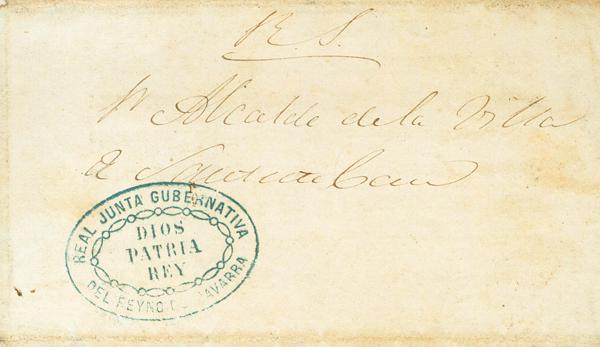 R. S.
Sr Alcalde de la Villa
de
REAL JUNTA GUBERNATIVA
DIOS
PATRIA
REY
DEL REYNO DE NAVARRA